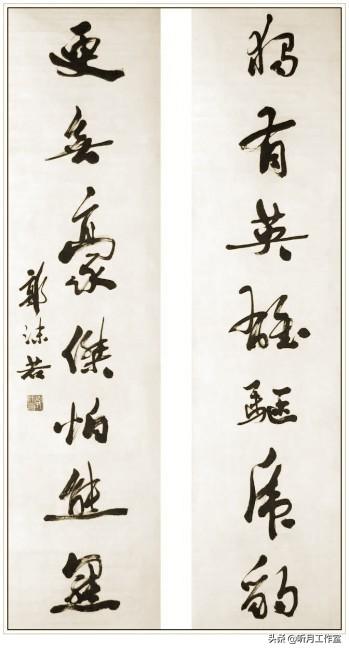 獨有英雄驅虎豹
更無豪傑怕熊羆
郭沫若
头条@听月工作室